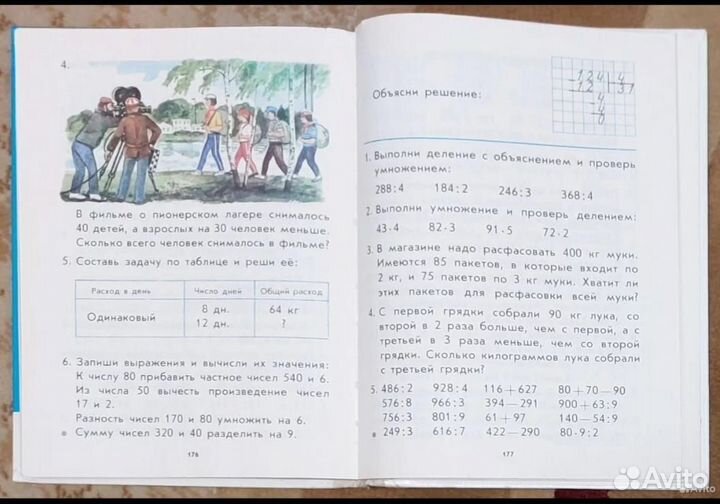 4.
В фильме о пионерском лагере снималось
40 детей, а взрослых на 30 человек меньше.
Сколько всего человек снималось в фильме?
5. Составь задачу по таблице и реши её:
Расход в день Число дней Общий расход
Одинаковый 8 дн. 64 кг
12 дн. ?
6. Запиши выражения и вычисли их значения:
К числу 80 прибавить частное чисел 540 и 6.
Из числа 50 вычесть произведение чисел
17 и 2.
Разность чисел 170 и 80 умножить на 6.
Сумму чисел 320 и 40 разделить на 9.
176
Объясни решение:
124 4
12 31
4
4
0
1. Выполни деление с объяснением и проверь
умножением:
288:4 184:2 246:3 368:4
2. Выполни умножение и проверь делением:
43·4 82·3 91·5 72·2
3. В магазине надо расфасовать 400 кг муки.
Имеются 85 пакетов, в которые входит по
2 кг, и 75 пакетов по 3 кг муки. Хватит ли
этих пакетов для расфасовки всей муки?
4. С первой грядки собрали 90 кг лука, со
второй в 2 раза больше, чем с первой, а с
третьей в 3 раза меньше, чем со второй
грядки. Сколько килограммов лука собрали
с третьей грядки?
5. 486:2 928:4 116+627 80+70—90
576:8 966:3 394—291 900+63:9
756:3 801:9 61+97 140—54:9
249:3 616:7 422—290 80·9:2
177
Avito
Avito